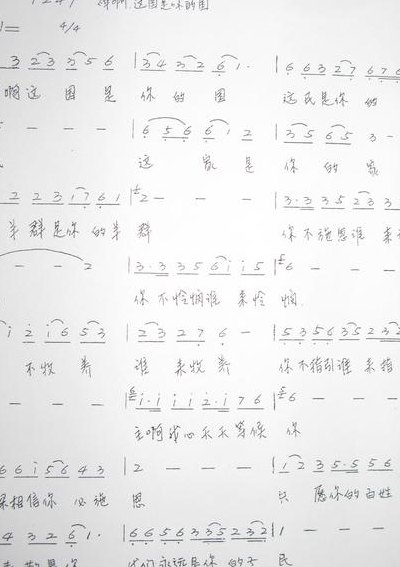 神啊,这国是你的国
4/4
3 2 3 3 5 6 | 3 4 3 2 6 1 · | 6 6 3 2 7 6 7 6
啊这 国 是 你 的 国 这民是你 的
— — — | 6 5 6 6 1 2 | 3 5 6 5 3 —
这 家 是 你 的 家
2 2 3 1 7 6 1 | 2 — — — | 3 · 3 3 5 2 3 3
羊群是你 的羊 群 你 不施恩谁 来
— — 2 | 3 · 3 3 5 6 i i 5 | 6 — — —
你 不怜悯谁 来怜 悯
i 2 i 6 5 3 | 2 3 2 7 6 — | 5 3 5 6 3 5 2 3 2
不牧 养 谁 来牧 养 你不指引谁 来指
— — — | i · i i i 2 · i 7 6 | 6 — — —
主啊我心天天等候 你
6 6 i 5 6 4 3 | 2 — — — | 1 2 3 5 · 5 5 6
相信你 必施 恩 只 愿你的百姓
4 3 2 6 1 · | 6 6 5 6 3 3 5 2 3 2 | 1 — — —
是你 我们永远是你 的子 民